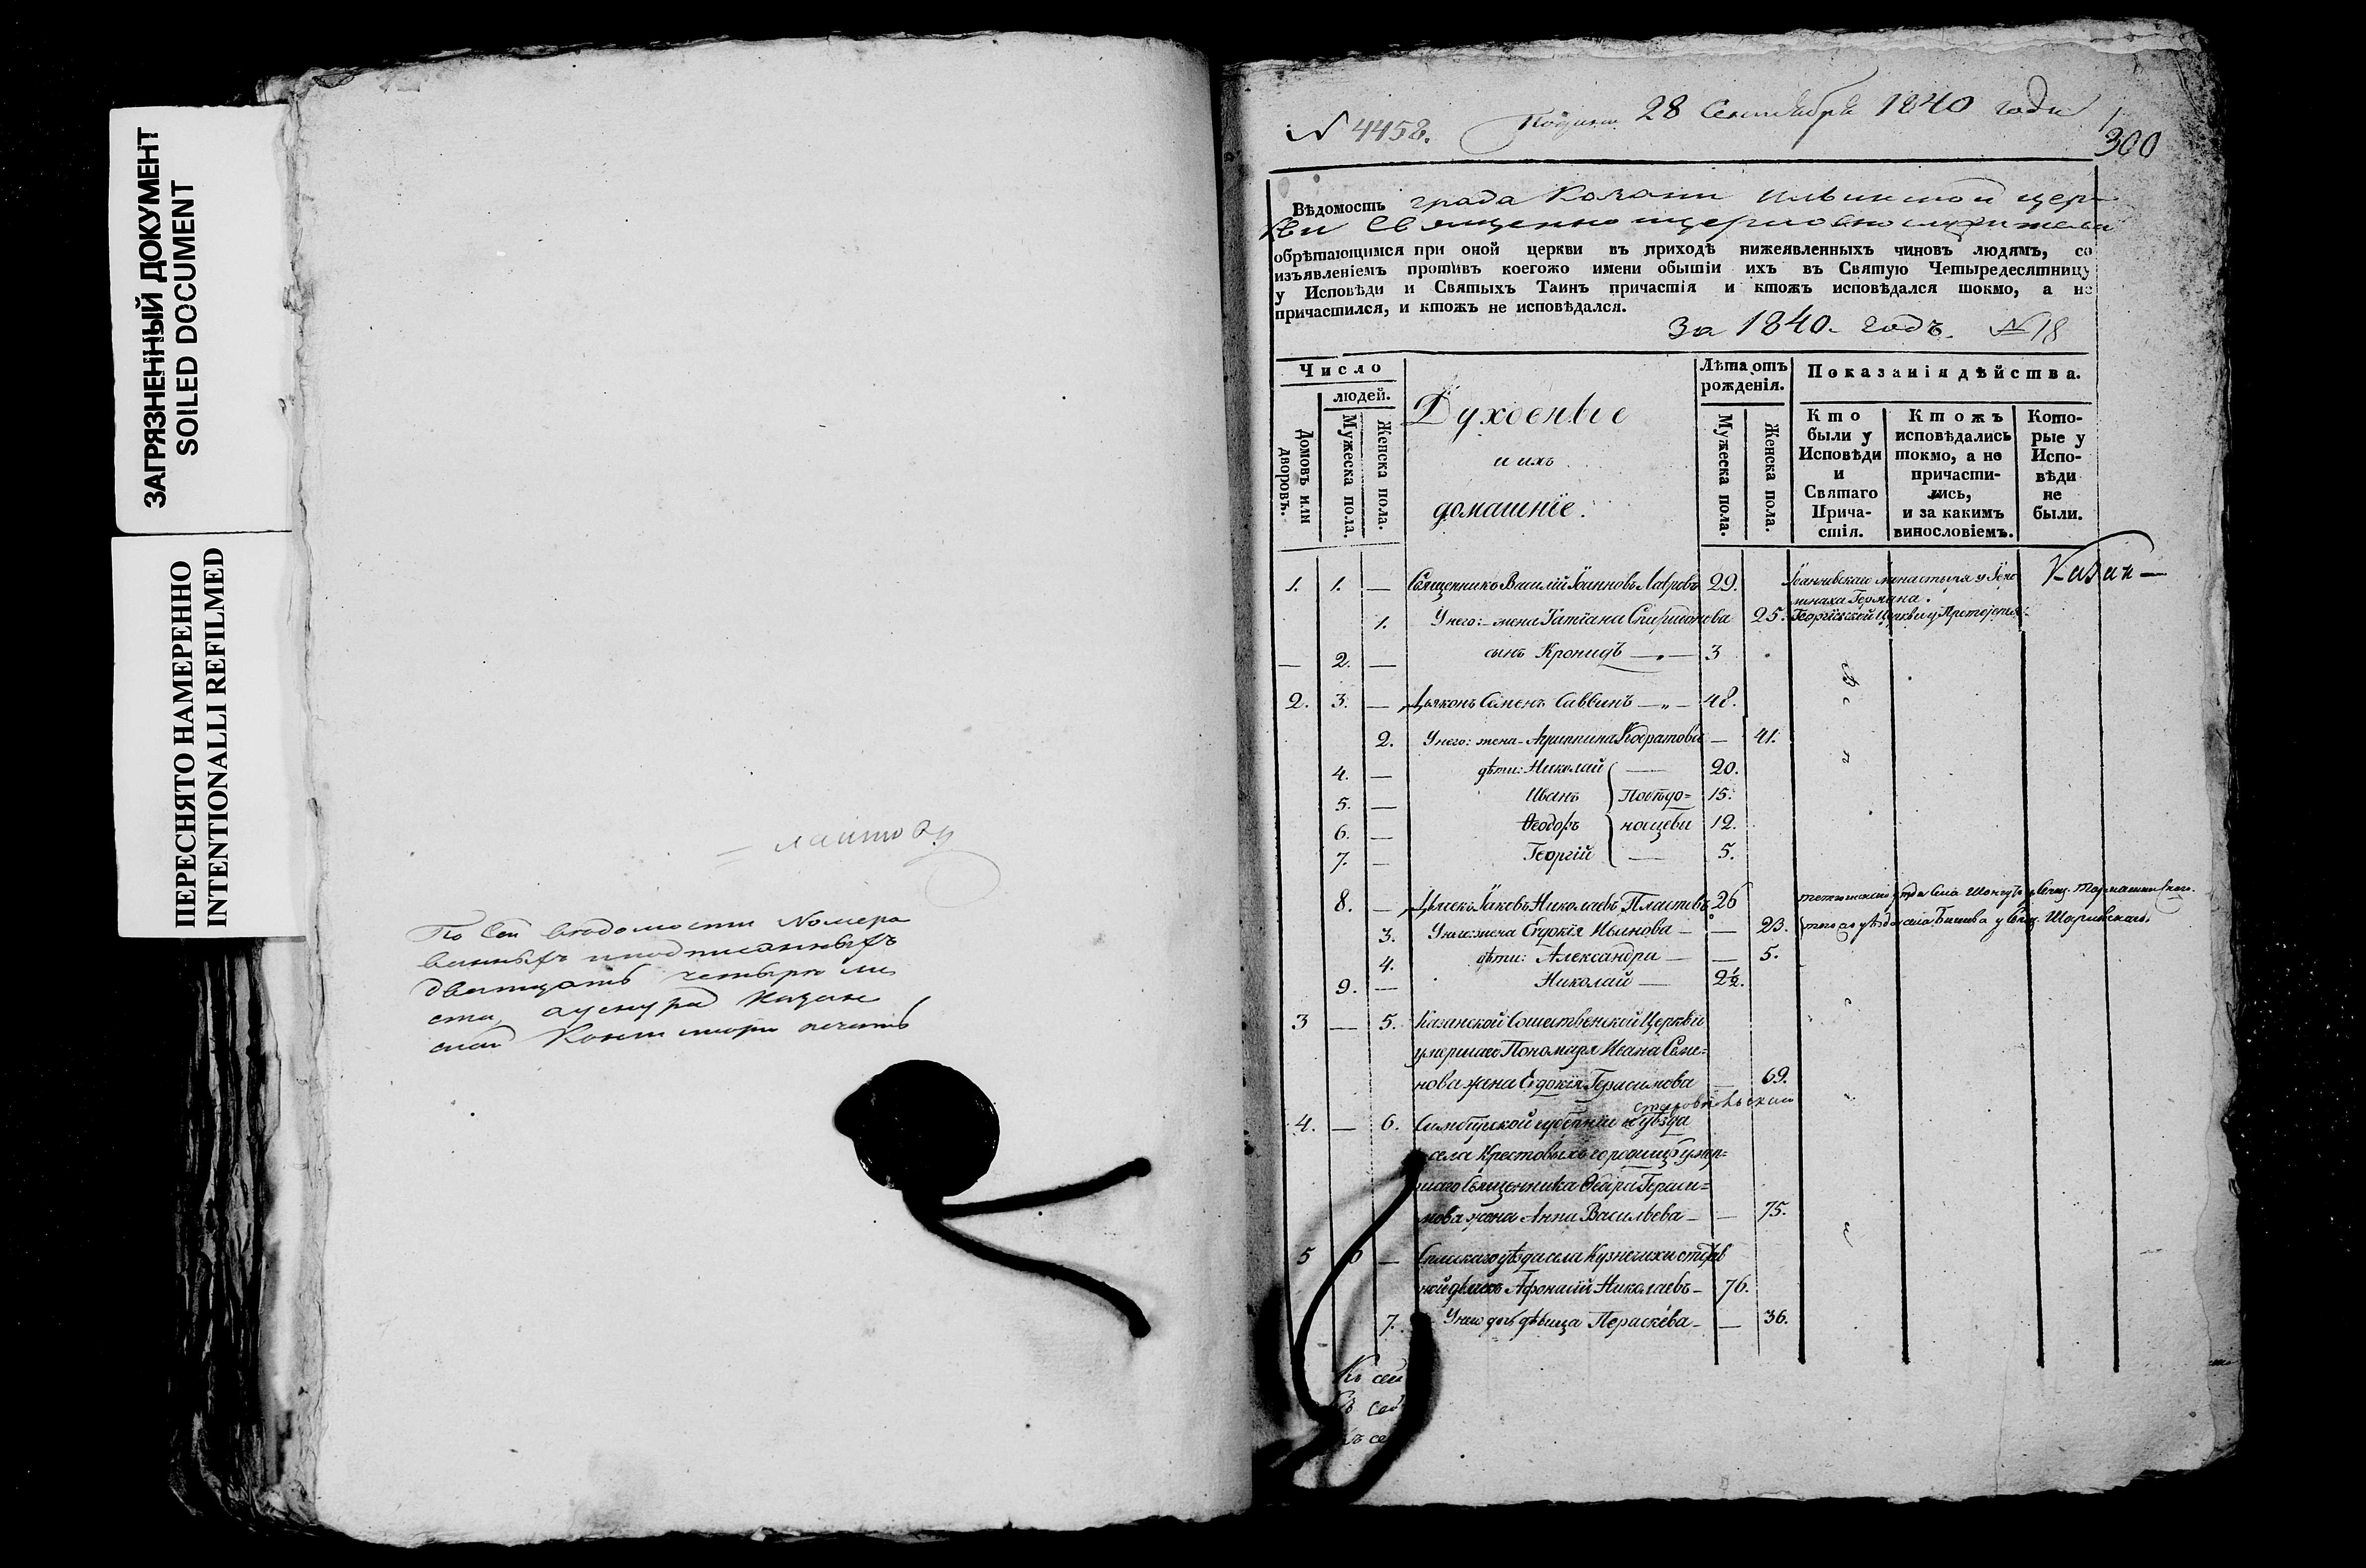 ЗАГРЯЗНЕННЫЙ ДОКУМЕНТ
SOILED DOCUMENT
ПЕРЕСНЯТО НАМЕРЕННО
INTENTIONALLI REFILMED
По сей ведомости номеро
ванныхъ и подписанныхъ
двадцать четыре ли
ста,
Конст печать
N 4458. 28 Сентября 1840 года
300
Вѣдомость града Казани Ильинской цер
кви Священноцерковнослужители
обрѣтающимся при оной церкви въ приходѣ нижеявленныхъ чиновъ людямъ, со
изъявленіемъ противъ коегожо имени обытіи ихъ въ Святую Четыредесятницу
у Исповѣди и Святыхъ Таинъ причастія и ктожъ исповѣдался токмо, а не
причастился, и ктожъ не исповѣдался.
За 1840 годъ. № 18
Число
людей.
Домовъ или дворовъ.
Мужеска пола.
Женска пола.
Духовные
и ихъ
домашніе.
Лѣта отъ
рожденія.
Мужеска пола.
Женска пола.
Показанія дѣйства.
Кто
были у
Исповѣди
и
Святаго
Прича-
стія.
Ктожъ
исповѣдались
токмо, а не
причасти-
лись,
и за какимъ
винословіемъ.
Кото-
рые у
Испо-
вѣди
не
были.
1. 1. — Священникъ Василій Іоанновъ Лавровъ 29. Іоанновскаго монастыря у Іеро
монаха Германа.
1. У него: жена Татіана Спиридонова 25. Георгіевской Церкви у Протоіерея
— 2. — сынъ Кронидъ — „ — 3
2. 3. — Дьяконъ Семенъ Саввинъ — „ — 48.
2. У него: жена Агриппина Кодратова — 41.
4. — дѣти: Николай — 20.
5. — Иванъ Побѣдо= 15.
6. — Ѳеодоръ носцевы 12.
7. — Георгій — 5.
8. — Дьячекъ Іаковъ Николаевъ Пластовъ 26
3. У него: жена Евдокія Иванова — — 23. того же уѣзда села у Свящ.
4. дѣти: Александра — — 5.
9. — Николай — 2½.
3 — 5. Казанской Сошественской Церкви
умершаго Пономаря Ивана Семе=
нова жена Евдокія Герасимова — 69.
ставропольскаго
4. — 6. Симбирской губерніи уѣзда
села Крестовыхъ городищъ умер=
шаго Священника Ѳедора Гераси=
мова жена Анна Васильева — — 75.
5 — Спасскаго уѣзда села Кузнечихи
Николаевъ — 76.
7. У него дочь дѣвица Параскева — — 36.
Къ сей